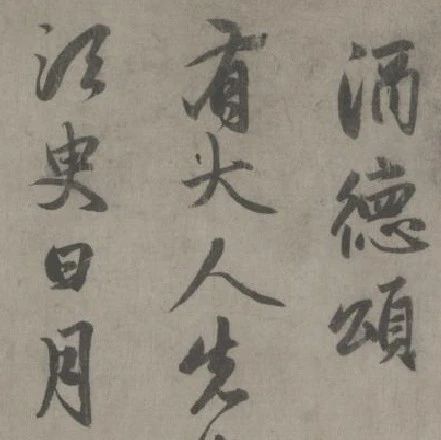 酒德頌
有大人先
須臾日月